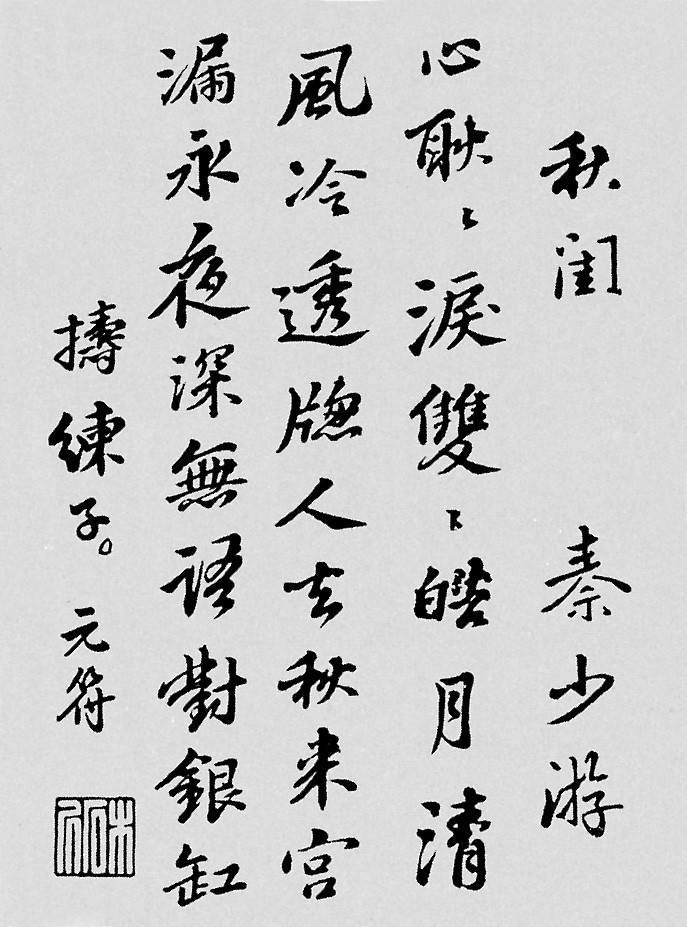 秋閨 秦少游
心耿〻淚雙〻皓月清
風冷透牕人去秋来宮
漏永夜深無語對銀缸
擣練子。元符